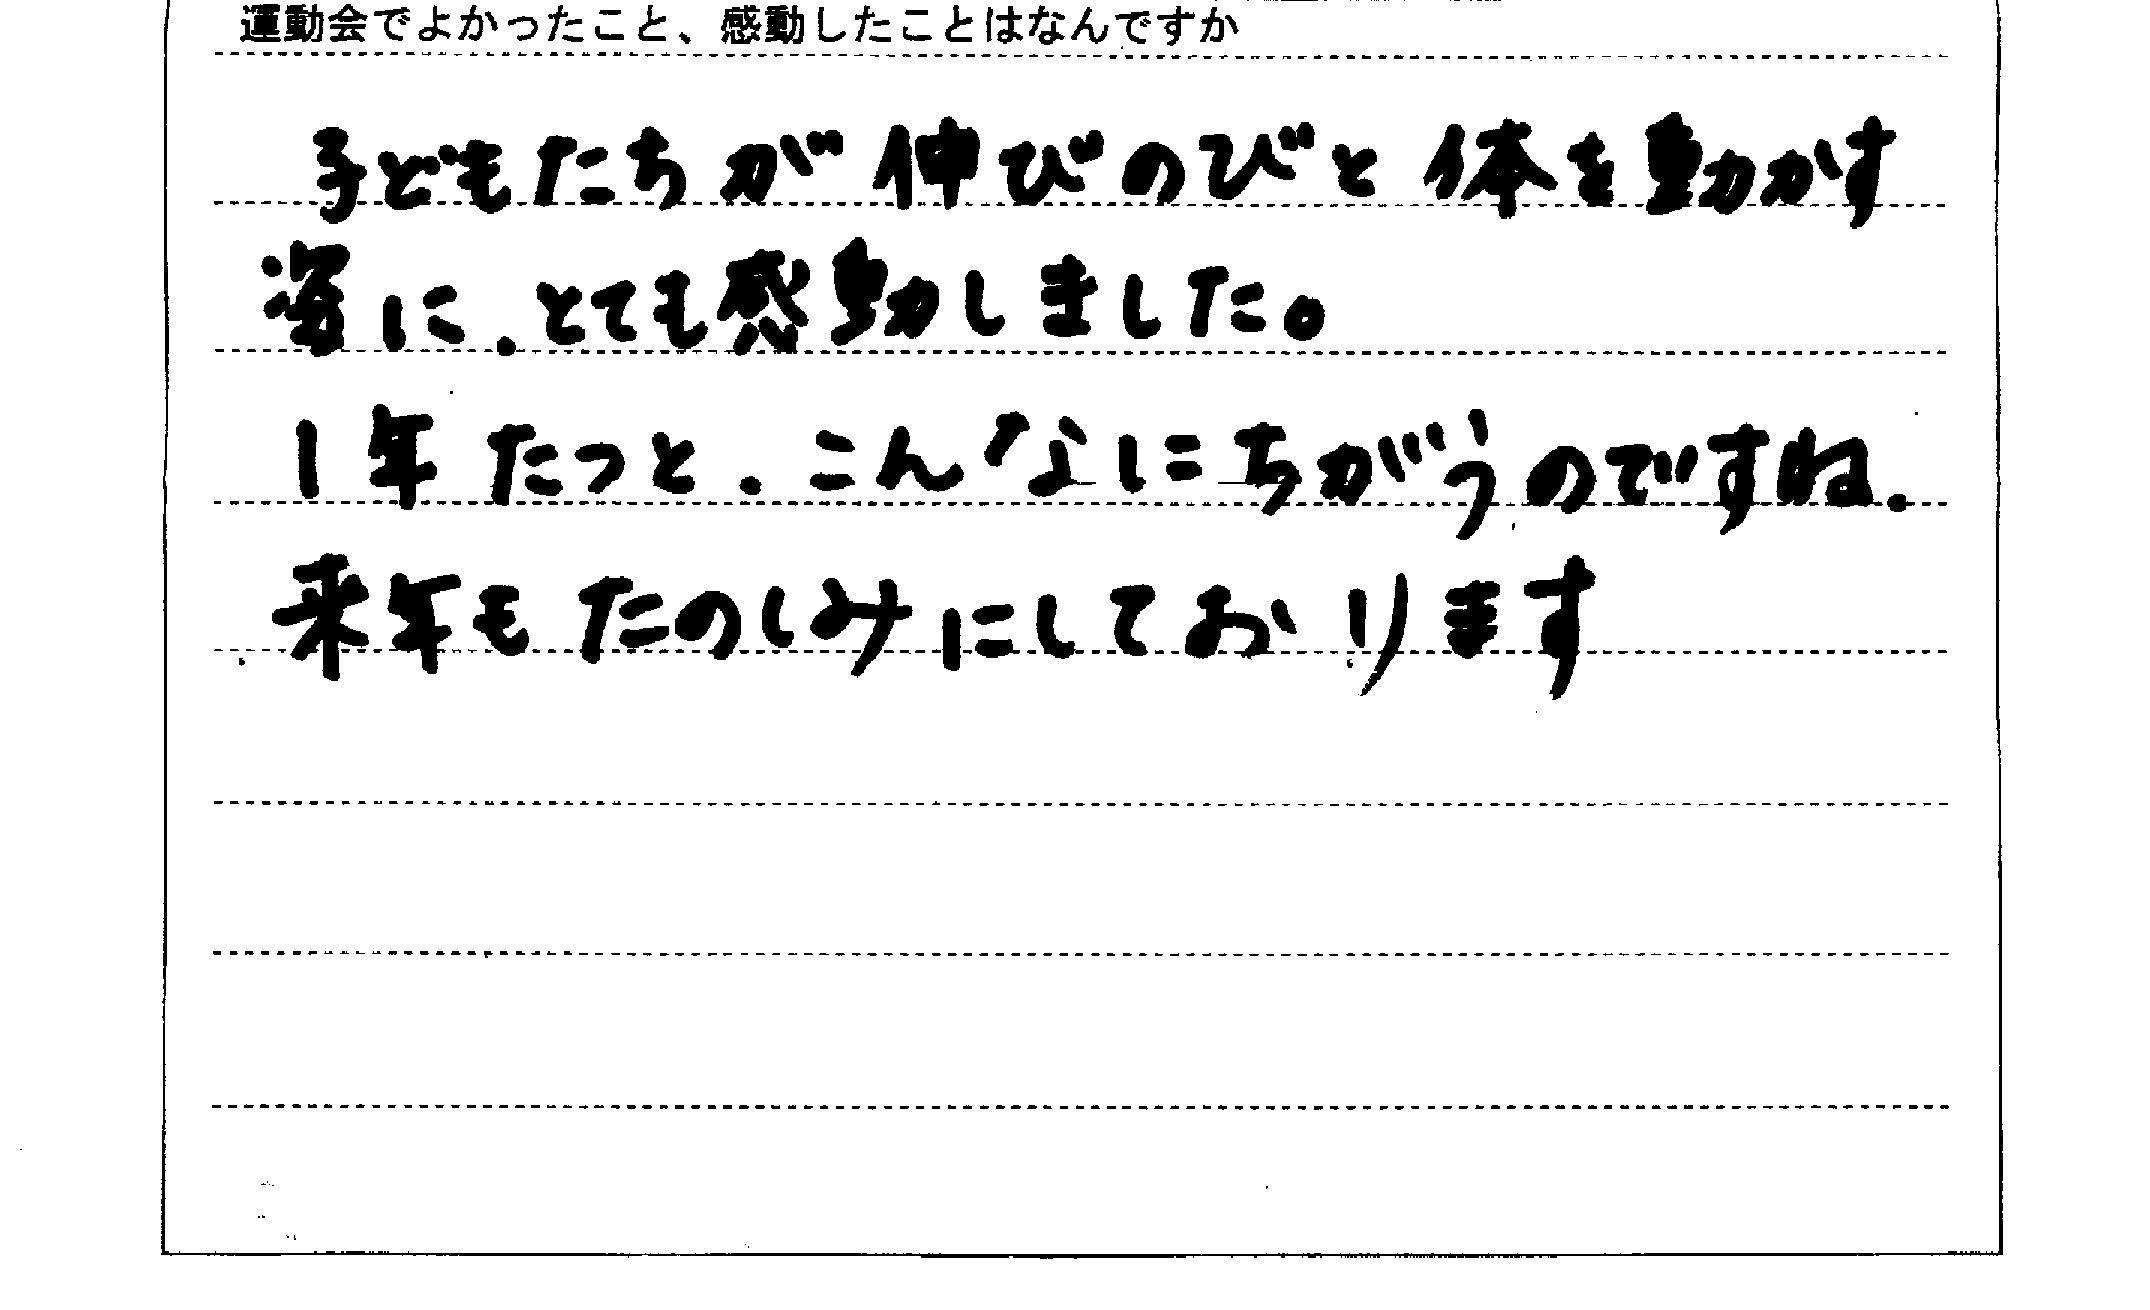 運動会でよかったこと、感動したことはなんですか
子どもたちが伸びのびと体を動かす
姿に、とても感動しました。
1年たつと、こんなにちがうのですね。
来年もたのしみにしております